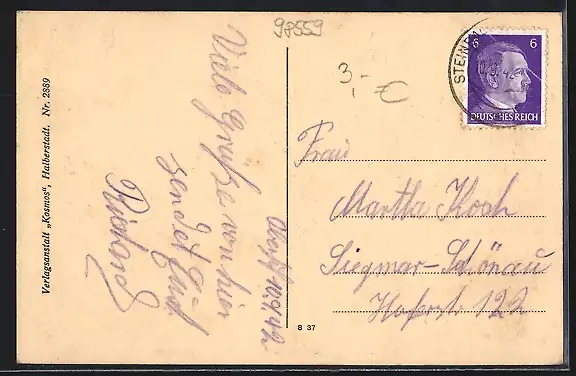 98559
3,- €
Verlagsanstalt „Kosmos“, Halberstadt. Nr. 2889
Viele Grüße von hier
sendet Euch
Richard
10.9.42
B 37
STEINB
6 6
DEUTSCHES REICH
Frau
Martha Koch
Siegmar-Schönau
Hoferstr. 122